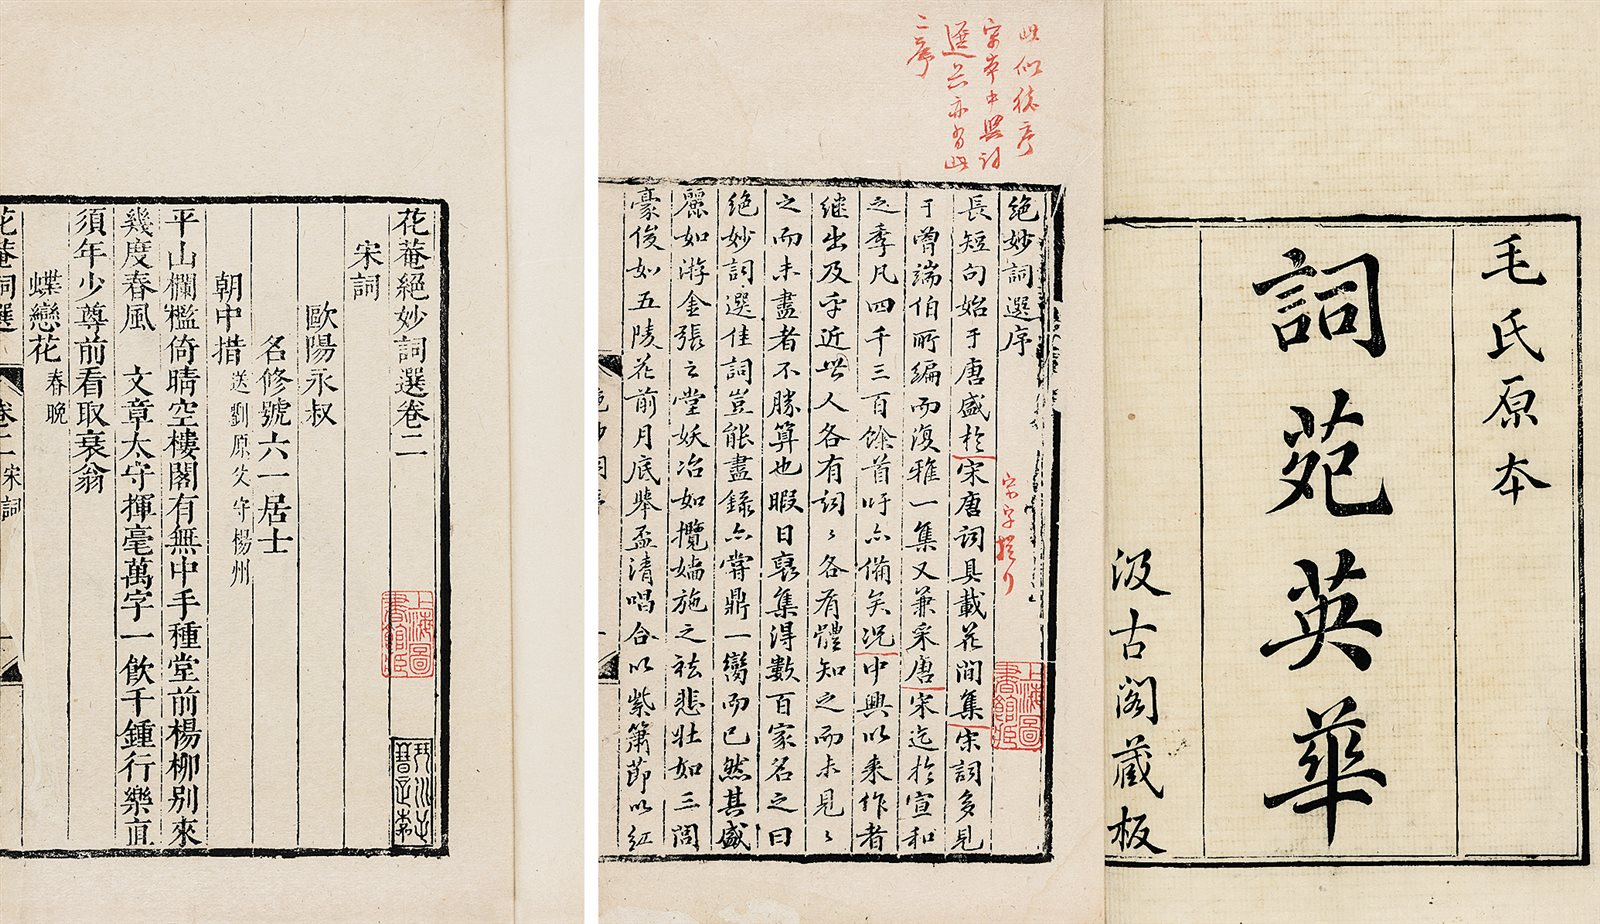 毛氏原本
詞苑英華
汲古閣藏板
此似後序
宋本中興詞
選前亦有此
二序
絕妙詞選序
長短句始于唐盛於宋唐詞具載花間集宋詞多見
于曾端伯所編而復雅一集又兼采唐宋迄於宣和
之季凡四千三百餘首吁亦備矣況中興以來作者
繼出及乎近世人各有詞詞各有體知之而未見見
之而未盡者不勝算也暇日裒集得數百家名之曰
絕妙詞選佳詞豈能盡錄亦嘗鼎一臠而已然其盛
麗如游金張之堂妖冶如攬嬙施之袪悲壯如三閭
豪俊如五陵花前月底舉盃清唱合以紫簫節以紅
宋字提行
上海圖書館藏
花菴絕妙詞選卷二
宋詞
歐陽永叔
名修號六一居士
朝中措 送劉原父守楊州
平山欄檻倚晴空樓閣有無中手種堂前楊柳別來
幾度春風 文章太守揮毫萬字一飲千鍾行樂直
須年少尊前看取衰翁
蝶戀花 春晚
花菴詞選 卷二 宋詞 一
上海圖書館藏